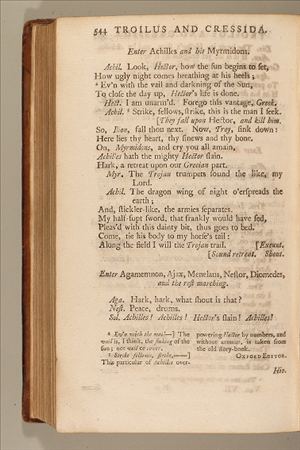 544 TROILUS AND CRESSIDA.
Enter Achilles and his Myrmidons.
Achil. Look, Hector, how the sun begins to set,
How ugly night comes breathing at his heels;
⁴ Ev'n with the vail and darkning of the Sun,
To close the day up, Hector's life is done.
Hect. I am unarm'd. Forego this vantage, Greek.
Achil. ⁵ Strike, fellows, strike, this is the man I seek.
[They fall upon Hector, and kill him.
So, Ilion, fall thou next. Now, Troy, sink down:
Here lies thy heart, thy sinews and thy bone.
On, Myrmidons, and cry you all amain,
Achilles hath the mighty Hector slain.
Hark, a retreat upon our Grecian part.
Myr. The Trojan trumpets sound the like, my
Lord.
Achil. The dragon wing of night o'erspreads the
earth;
And, stickler-like, the armies separates.
My half-supt sword, that frankly would have fed,
Pleas'd with this dainty bit, thus goes to bed.
Come, tie his body to my horse's tail:
Along the field I will the Trojan trail. [Exeunt.
[Sound retreat. Shout.
Enter Agamemnon, Ajax, Menelaus, Nestor, Diomedes,
and the rest marching.
Aga. Hark, hark, what shout is that?
Nest. Peace, drums.
Sol. Achilles! Achilles! Hector's slain! Achilles!
⁴ Ev'n with the vail—] The
vail is, I think, the sinking of the
sun; not vail or cover.
⁵ Strike fellows, strike,——]
This particular of Achilles over-
powering Hector by numbers, and
without armour, is taken from
the old story-book.
OXFORD EDITOR.
Hec.